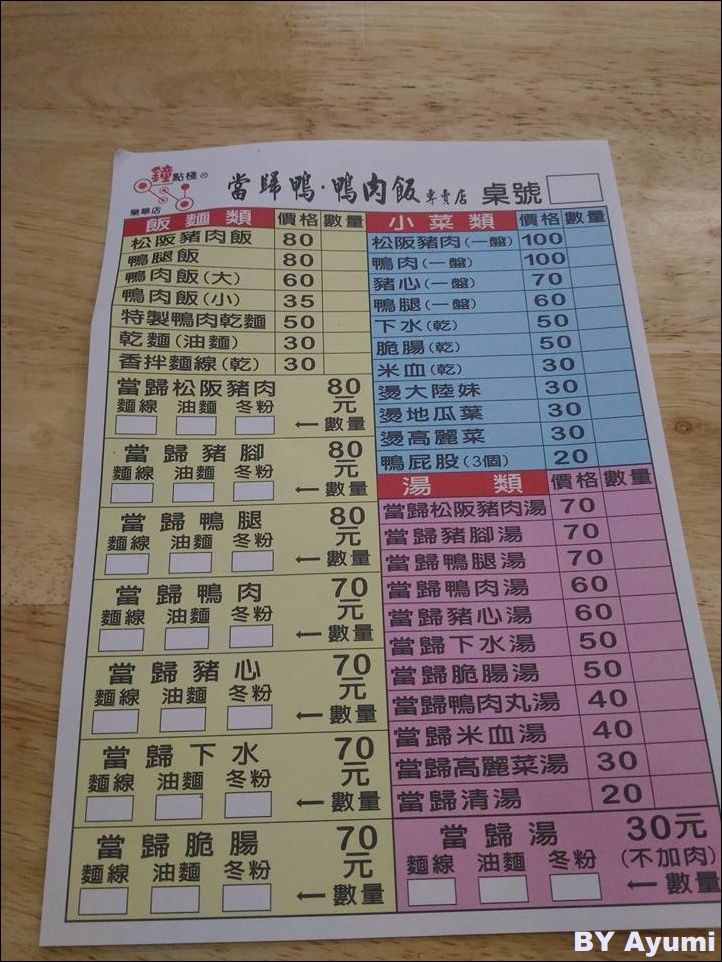 鐘點棧®
樂華店
當歸鴨·鴨肉飯專賣店 桌號
飯麵類 價格 數量
松阪豬肉飯 80
鴨腿飯 80
鴨肉飯(大) 60
鴨肉飯(小) 35
特製鴨肉乾麵 50
乾麵(油麵) 30
香拌麵線(乾) 30
當歸松阪豬肉 80元
麵線 油麵 冬粉 ←數量
當歸豬腳 80元
麵線 油麵 冬粉 ←數量
當歸鴨腿 80元
麵線 油麵 冬粉 ←數量
當歸鴨肉 70元
麵線 油麵 冬粉 ←數量
當歸豬心 70元
麵線 油麵 冬粉 ←數量
當歸下水 70元
麵線 油麵 冬粉 ←數量
當歸脆腸 70元
麵線 油麵 冬粉 ←數量
小菜類 價格 數量
松阪豬肉(一盤) 100
鴨肉(一盤) 100
豬心(一盤) 70
鴨腿(一盤) 60
下水(乾) 50
脆腸(乾) 50
米血(乾) 30
燙大陸妹 30
燙地瓜葉 30
燙高麗菜 30
鴨屁股(3個) 20
湯類 價格 數量
當歸松阪豬肉湯 70
當歸豬腳湯 70
當歸鴨腿湯 70
當歸鴨肉湯 60
當歸豬心湯 60
當歸下水湯 50
當歸脆腸湯 50
當歸鴨肉丸湯 40
當歸米血湯 40
當歸高麗菜湯 30
當歸清湯 20
當歸湯 30元
(不加肉)
麵線 油麵 冬粉 ←數量
BY Ayumi